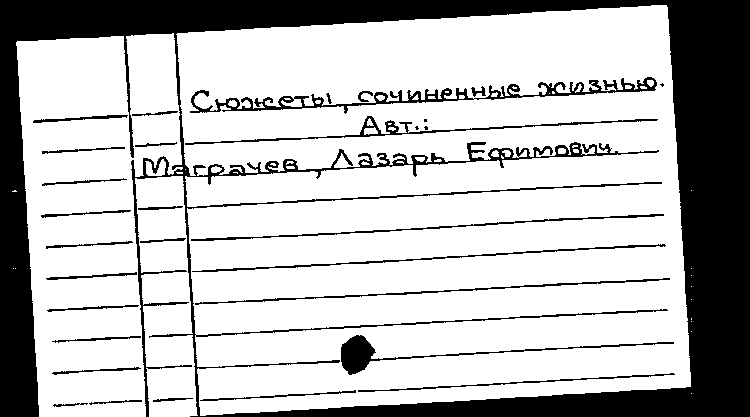 Сюжеты, сочиненные жизнью.
Авт.:
Маграчев, Лазарь Ефимович.